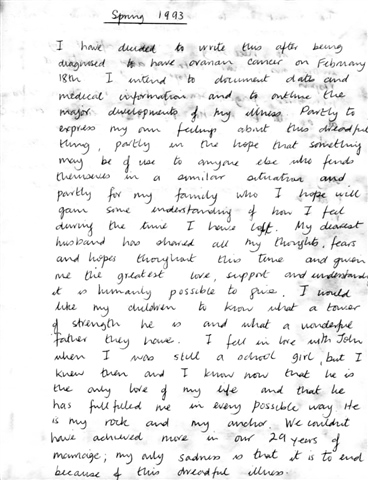 Spring 1993
I have decided to write this after being
diagnosed to have ovarian cancer on February
18th I intend to document dates and
medical information and to outline the
major developments of my illness. Partly to
express my own feelings about this dreadful
thing, partly in the hope that something
may be of use to anyone else who finds
themselves in a similar situation and
partly for my family who I hope will
gain some understanding of how I feel
during the time I have left. My dearest
husband has shared all my thoughts, fears
and hopes throughout this time and given
me the greatest love, support and understanding
it is humanly possible to give. I would
like my children to know what a tower
of strength he is and what a wonderful
father they have. I fell in love with John
when I was still a school girl, but I
knew then and I know now that he is
the only love of my life and that he
has fullfilled me in every possible way. He
is my rock and my anchor. We couldnt
have achieved more in our 29 years of
marriage; my only sadness is that it is to end
because of this dreadful illness.